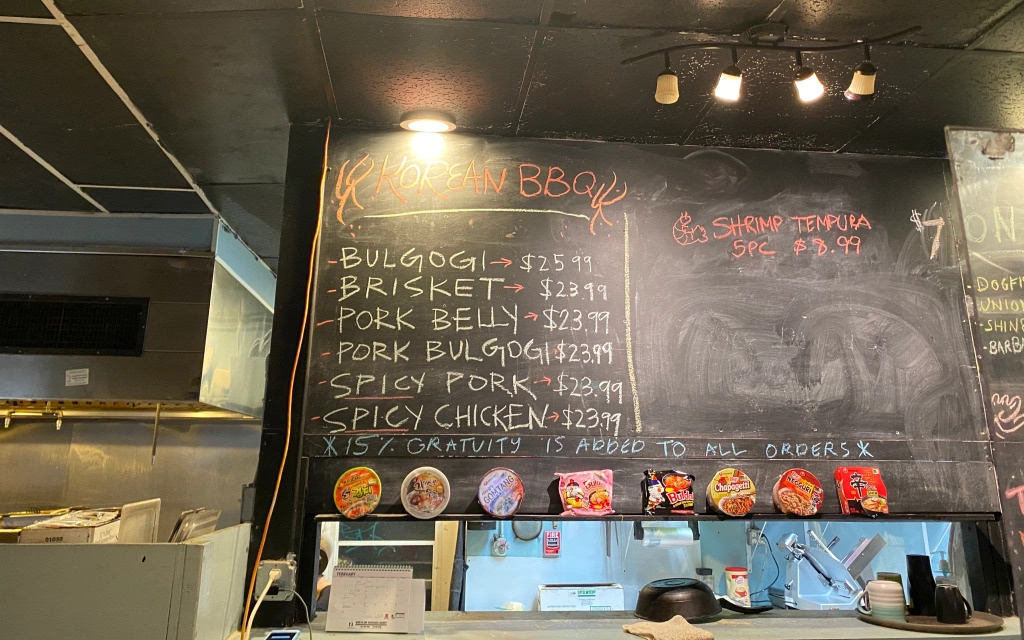 KOREAN BBQ
BULGOGI → $25.99
BRISKET → $23.99
PORK BELLY → $23.99
PORK BULGOGI $23.99
SPICY PORK → $23.99
SPICY CHICKEN → $23.99
SHRIMP TEMPURA
5PC $8.99
*15% GRATUITY IS ADDED TO ALL ORDERS*
ON
- DOGFI
UNION
- SHIN
- BARBA
GOMTANG
Chapagetti
辛
FEBRUARY